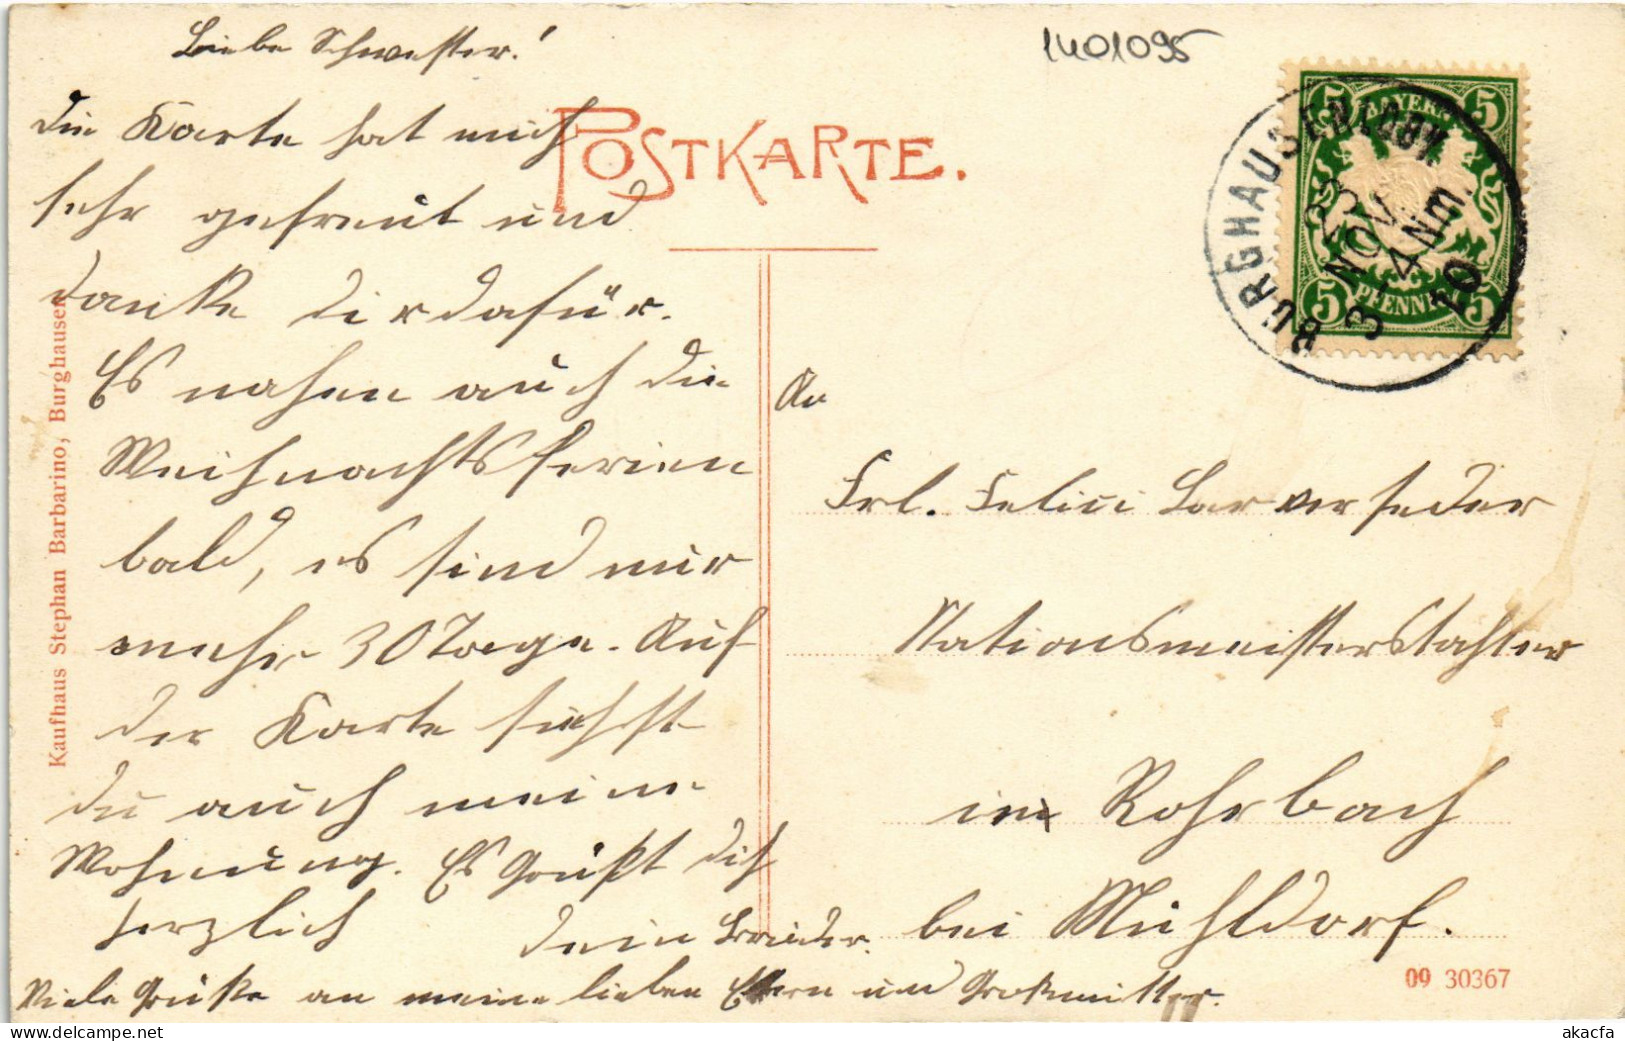 Liebe Schwester!
1401095
Die Karte hat mich
sehr gefreut und
danke dir dafür.
Es nahen auch die
Weihnachtsferien
bald, es sind nur
mehr 30 Tage. Auf
der Karte siehst
du auch meine
Wohnung. Es Grüßt dich
herzlich
dein Bruder.
Viele Grüße an meine lieben Eltern und Großmutter.
POSTKARTE.
BAYERN
5 5
5 5
PFENNIG
BURGHAUSEN
23
NOV.
3-4 Nm.
10
An
Frl.
Stationsmeisterstochter
in Rohrbach
bei Mühldorf.
09 30367
Kaufhaus Stephan Barbarino, Burghausen
akacfa
www.delcampe.net